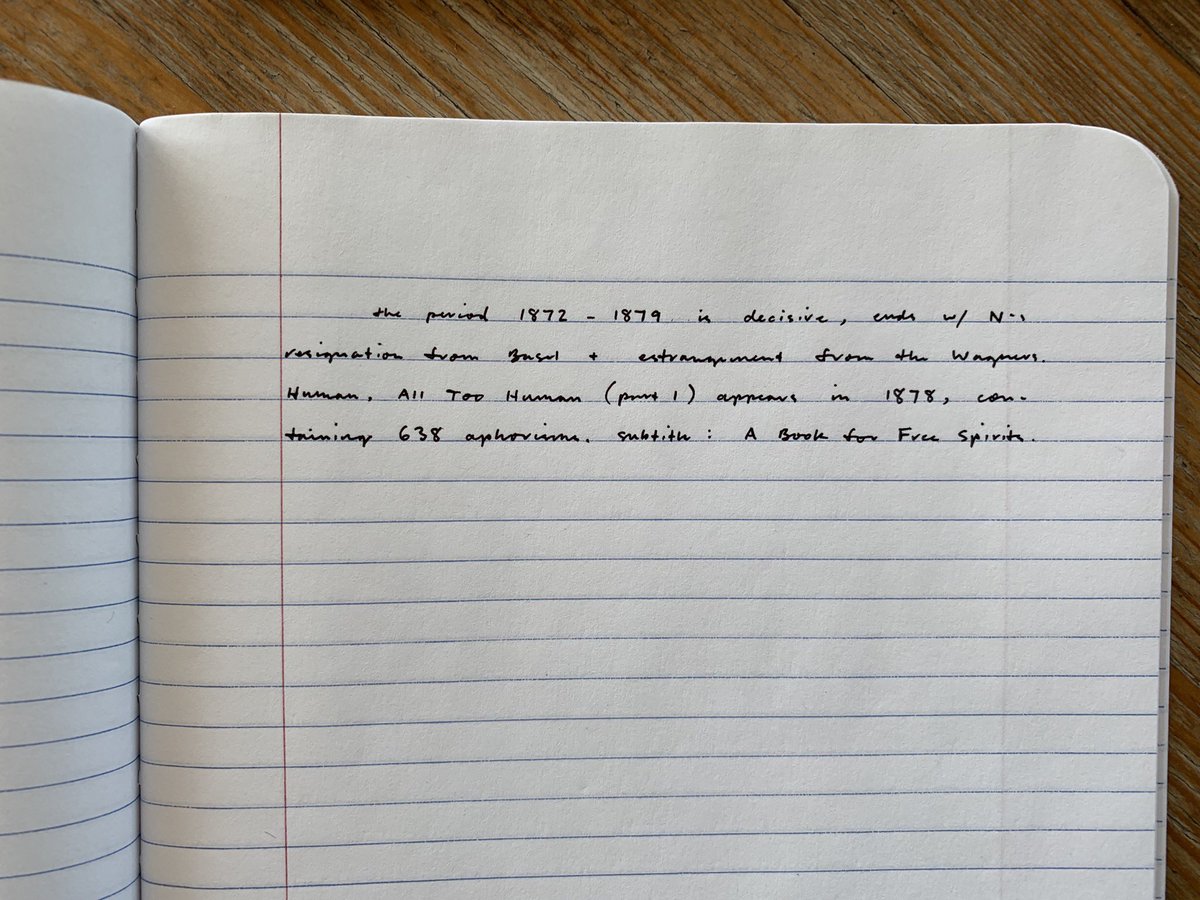 the period 1872 - 1879 is decisive, ends w/ N's
resignation from Basel + estrangement from the Wagners.
Human, All Too Human (part 1) appears in 1878, con-
taining 638 aphorisms. subtitle: A Book for Free Spirits.